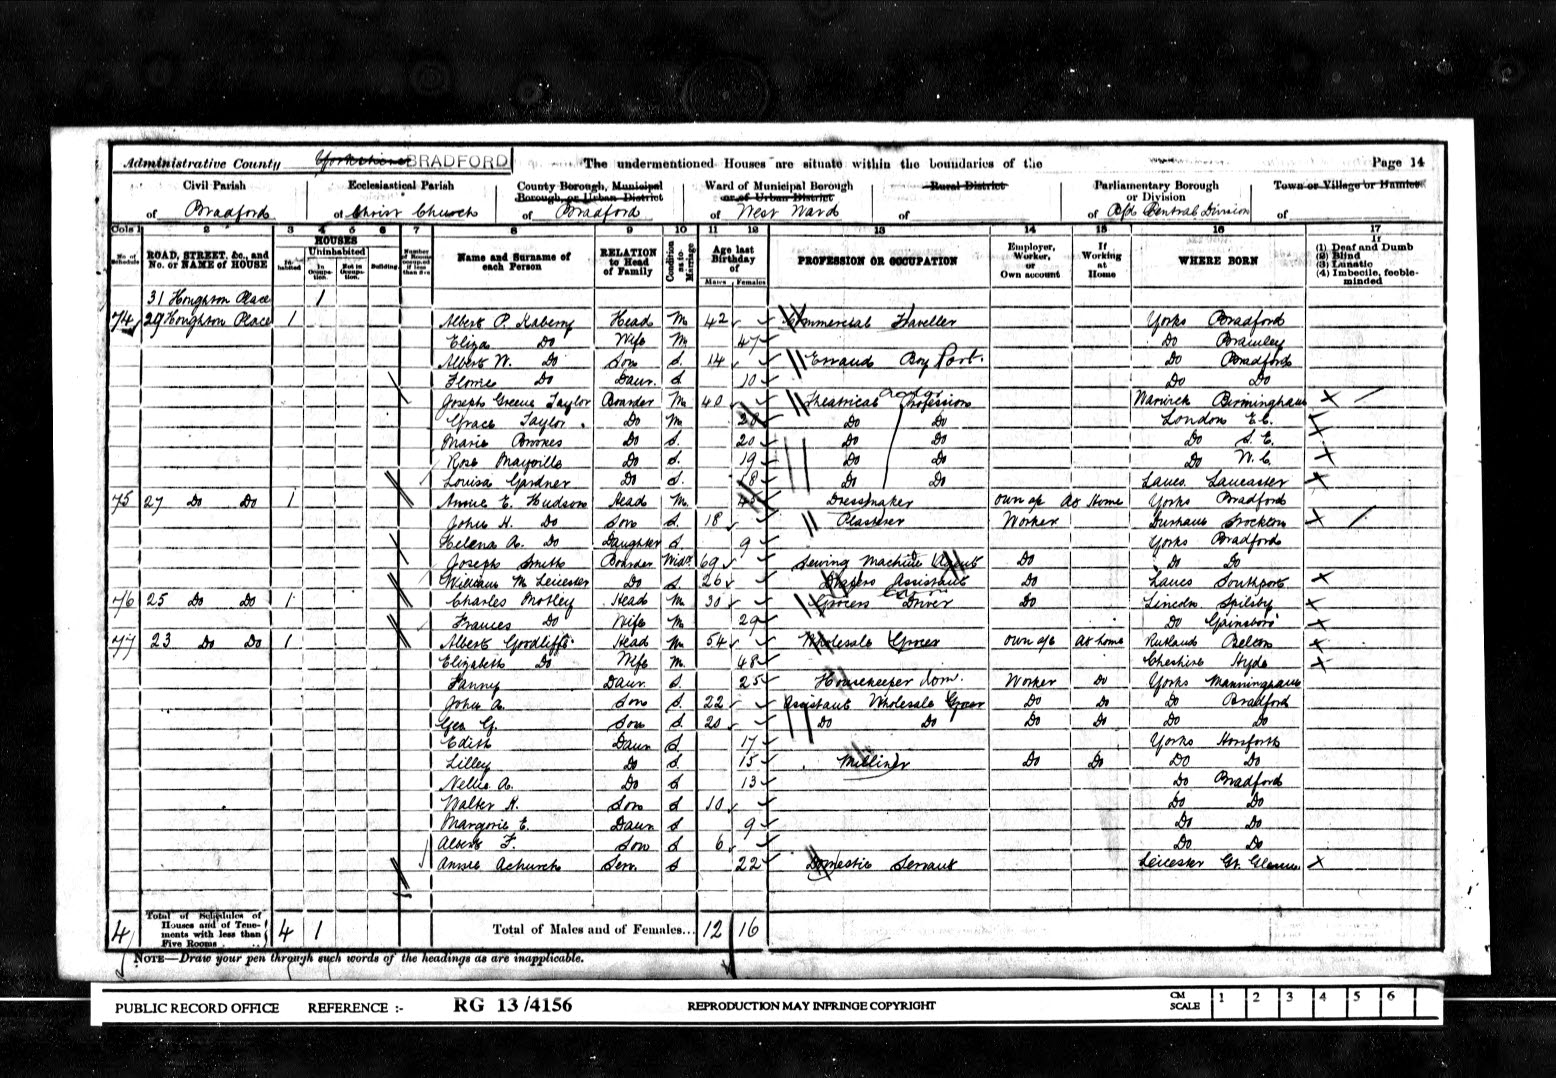 Administrative County Yorkshire BRADFORD The undermentioned Houses are situate within the boundaries of the Page 14
Civil Parish Ecclesiastical Parish County Borough, Municipal Borough, or Urban District Ward of Municipal Borough or of Urban District Rural District Parliamentary Borough or Division Town or Village or Hamlet
of Bradford of Christ Church of Bradford of West Ward of of Bfd Central Division of
Cols 1 2 3 4 5 6 7 8 9 10 11 12 13 14 15 16 17
No. of Schedule ROAD, STREET, &c., and No. or NAME of HOUSE HOUSES Inhabited Uninhabited In Occupation. Not in Occupation. Building. Number of Rooms occupied if less than five Name and Surname of each Person RELATION to Head of Family Condition as to Marriage Age last Birthday of Males Females PROFESSION OR OCCUPATION Employer, Worker, or Own account If Working at Home WHERE BORN If (1) Deaf and Dumb (2) Blind (3) Lunatic (4) Imbecile, feeble-minded
31 Houghton Place 1
74 29 Houghton Place 1 Albert P. Kaberry Head M 42 Commercial Traveller Yorks Bradford
Eliza Do Wife M 47 Do Bramley
Albert W. Do Son S. 14 Errand Boy Port. Do Bradford
Florrie Do Daur. S 10 Do Do
Joseph Greene Taylor Boarder M 40 Theatrical Profession Actor Warwick Birmingham
Grace Taylor Do M 28 Do Do London E.C.
Marie Brookes Do S. 20 Do Do Do S.E.
Rose Mayville Do S. 19 Do Do Do W.C.
Louisa Gardner Do S. 18 Do Do Lancs. Lancaster
75 27 Do Do 1 Annie E. Hudson Head M. Dressmaker own a/c At Home Yorks Bradford
John H. Do Son S. 18 Plasterer Worker Durham Stockton
Helena A. Do Daughter S 9 Yorks Bradford
Joseph Smith Boarder Widr. 69 Sewing Machine Agent Do Do Do
William M Leicester Do S 26 Drapers Assistant Do Lancs Southport
76 25 Do Do 1 Charles Motley Head M 30 Grocers Driver Do Lincoln Spilsby
Frances Do Wife M 29 Do Gainsboro'
77 23 Do Do 1 Albert Goodliffe Head M 54 Wholesale Grocer own a/c At home Rutland Belton
Elizabeth Do Wife M. 48 Cheshire Hyde
Fanny Daur. S. 25 Housekeeper dom. Worker Do Yorks Manningham
John A. Son S. 22 Assistant Wholesale Grocer Do Do Do Bradford
Geo G. Son S. 20 Do Do Do Do Do Do
Edith Daur S 17 Yorks Horsforth
Lilley Do S 15 Milliner Do Do Do Do
Nellie A. Do S 13 Do Bradford
Walter H. Son S 10 Do Do
Margorie E. Daur S 9 Do Do
Albert F. Son S 6 Do Do
Annie Achurch Serv. S 22 Domestic Servant Leicester Gt. Glenn
4 Total of Schedules of Houses and of Tenements with less than Five Rooms 4 1 Total of Males and of Females... 12 16
NOTE—Draw your pen through such words of the headings as are inapplicable.
PUBLIC RECORD OFFICE REFERENCE :- RG 13/4156 REPRODUCTION MAY INFRINGE COPYRIGHT CM SCALE 1 2 3 4 5 6